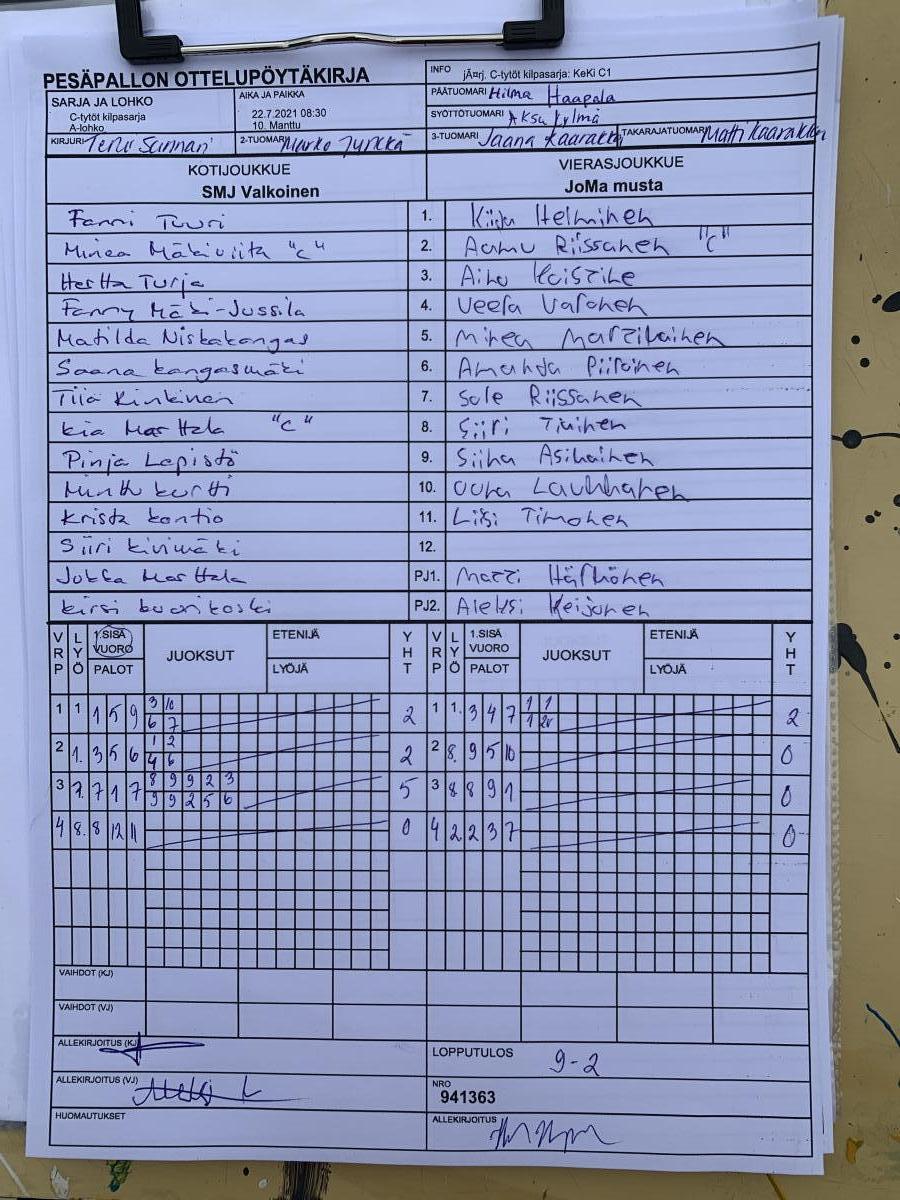 PESÄPALLON OTTELUPÖYTÄKIRJA
INFO jÃ¤rj. C-tytöt kilpasarja: KeKi C1
SARJA JA LOHKO
C-tytöt kilpasarja
A-lohko
AIKA JA PAIKKA
22.7.2021 08:30
10. Manttu
PÄÄTUOMARI Hilma Haapala
SYÖTTÖTUOMARI Aksu Kylmä
KIRJURI
2-TUOMARI Marko Turkka
3-TUOMARI Jaana Kaarakka
TAKARAJATUOMARI Matti Kaarakka
KOTIJOUKKUE
SMJ Valkoinen
VIERASJOUKKUE
JoMa musta
Fanni Tuuri 1. Kiija Helminen
Minea Mäkiviita "c" 2. Aamu Riissanen "C"
Hertta Turja 3. Aino
Fanny Mäki-Jussila 4. Veera Varonen
Matilda Niskakangas 5. Minea Martikainen
Saana kangasmäki 6. Amanda Piiroinen
Tiia Kinkinen 7. Sole Riissanen
kia Marttala "c" 8. Siiri Tiainen
Pinja Lepistö 9. Siina Asikainen
Minttu kortti 10. Oona Laukkanen
Krista kontio 11. Liisi Timonen
Siiri kivimäki 12.
Jukka Marttala PJ1. Matti Härkönen
kirsi kuorikoski PJ2. Aleksi Keijonen
VRP LYÖ 1.SISÄ VUORO PALOT JUOKSUT ETENIJÄ LYÖJÄ YHT VRP LYÖ 1.SISÄ VUORO PALOT JUOKSUT ETENIJÄ LYÖJÄ YHT
1 1 1 5 9 3 10 2 1 1. 3 4 7 1 1 2
6 7
2 1. 3 5 6 1 2 2 2 8. 9 5 10 0
4 6
3 7. 7 1 7 8 9 9 2 3 5 3 8 8 9 1 0
9 9 2 5 6
4 8. 8 12 11 0 4 2 2 3 7 0
VAIHDOT (KJ)
VAIHDOT (VJ)
ALLEKIRJOITUS (KJ)
LOPPUTULOS 9-2
ALLEKIRJOITUS (VJ)
NRO
941363
HUOMAUTUKSET
ALLEKIRJOITUS